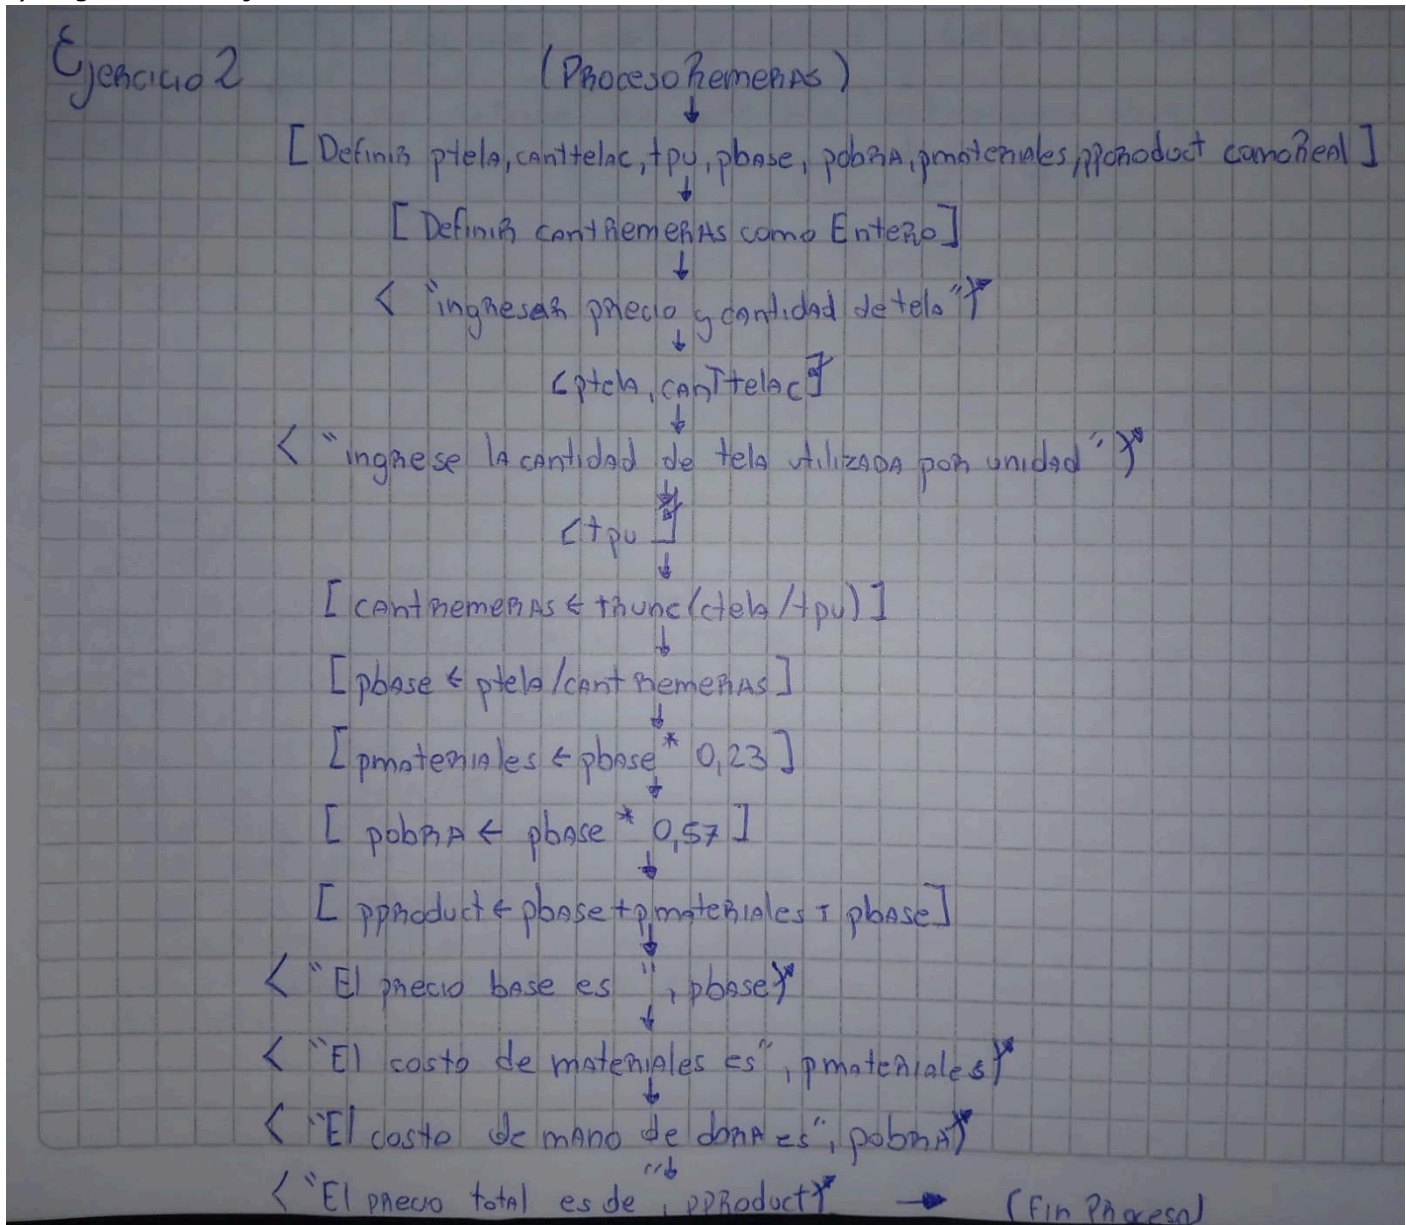 Ejercicio 2
(Proceso Remeras)
[Definir ptela, canttelac, tpu, pbase, pobra, pmateriales, pproduct como Real]
[Definir cantRemeras como Entero]
< "ingresar precio y cantidad de tela"
<ptela, canttelac]
< "ingrese la cantidad de tela utilizada por unidad"
<tpu]
[cantremeras ← trunc(ctela/tpu)]
[pbase ← ptela/cantremeras]
[pmateriales ← pbase * 0,23]
[pobra ← pbase * 0,57]
[pproduct ← pbase+pmateriales + pbase]
< "El precio base es ", pbase
< "El costo de materiales es", pmateriales
< "El costo de mano de dora es", pobra
< "El precio total es de ", pproduct → (Fin Proceso)